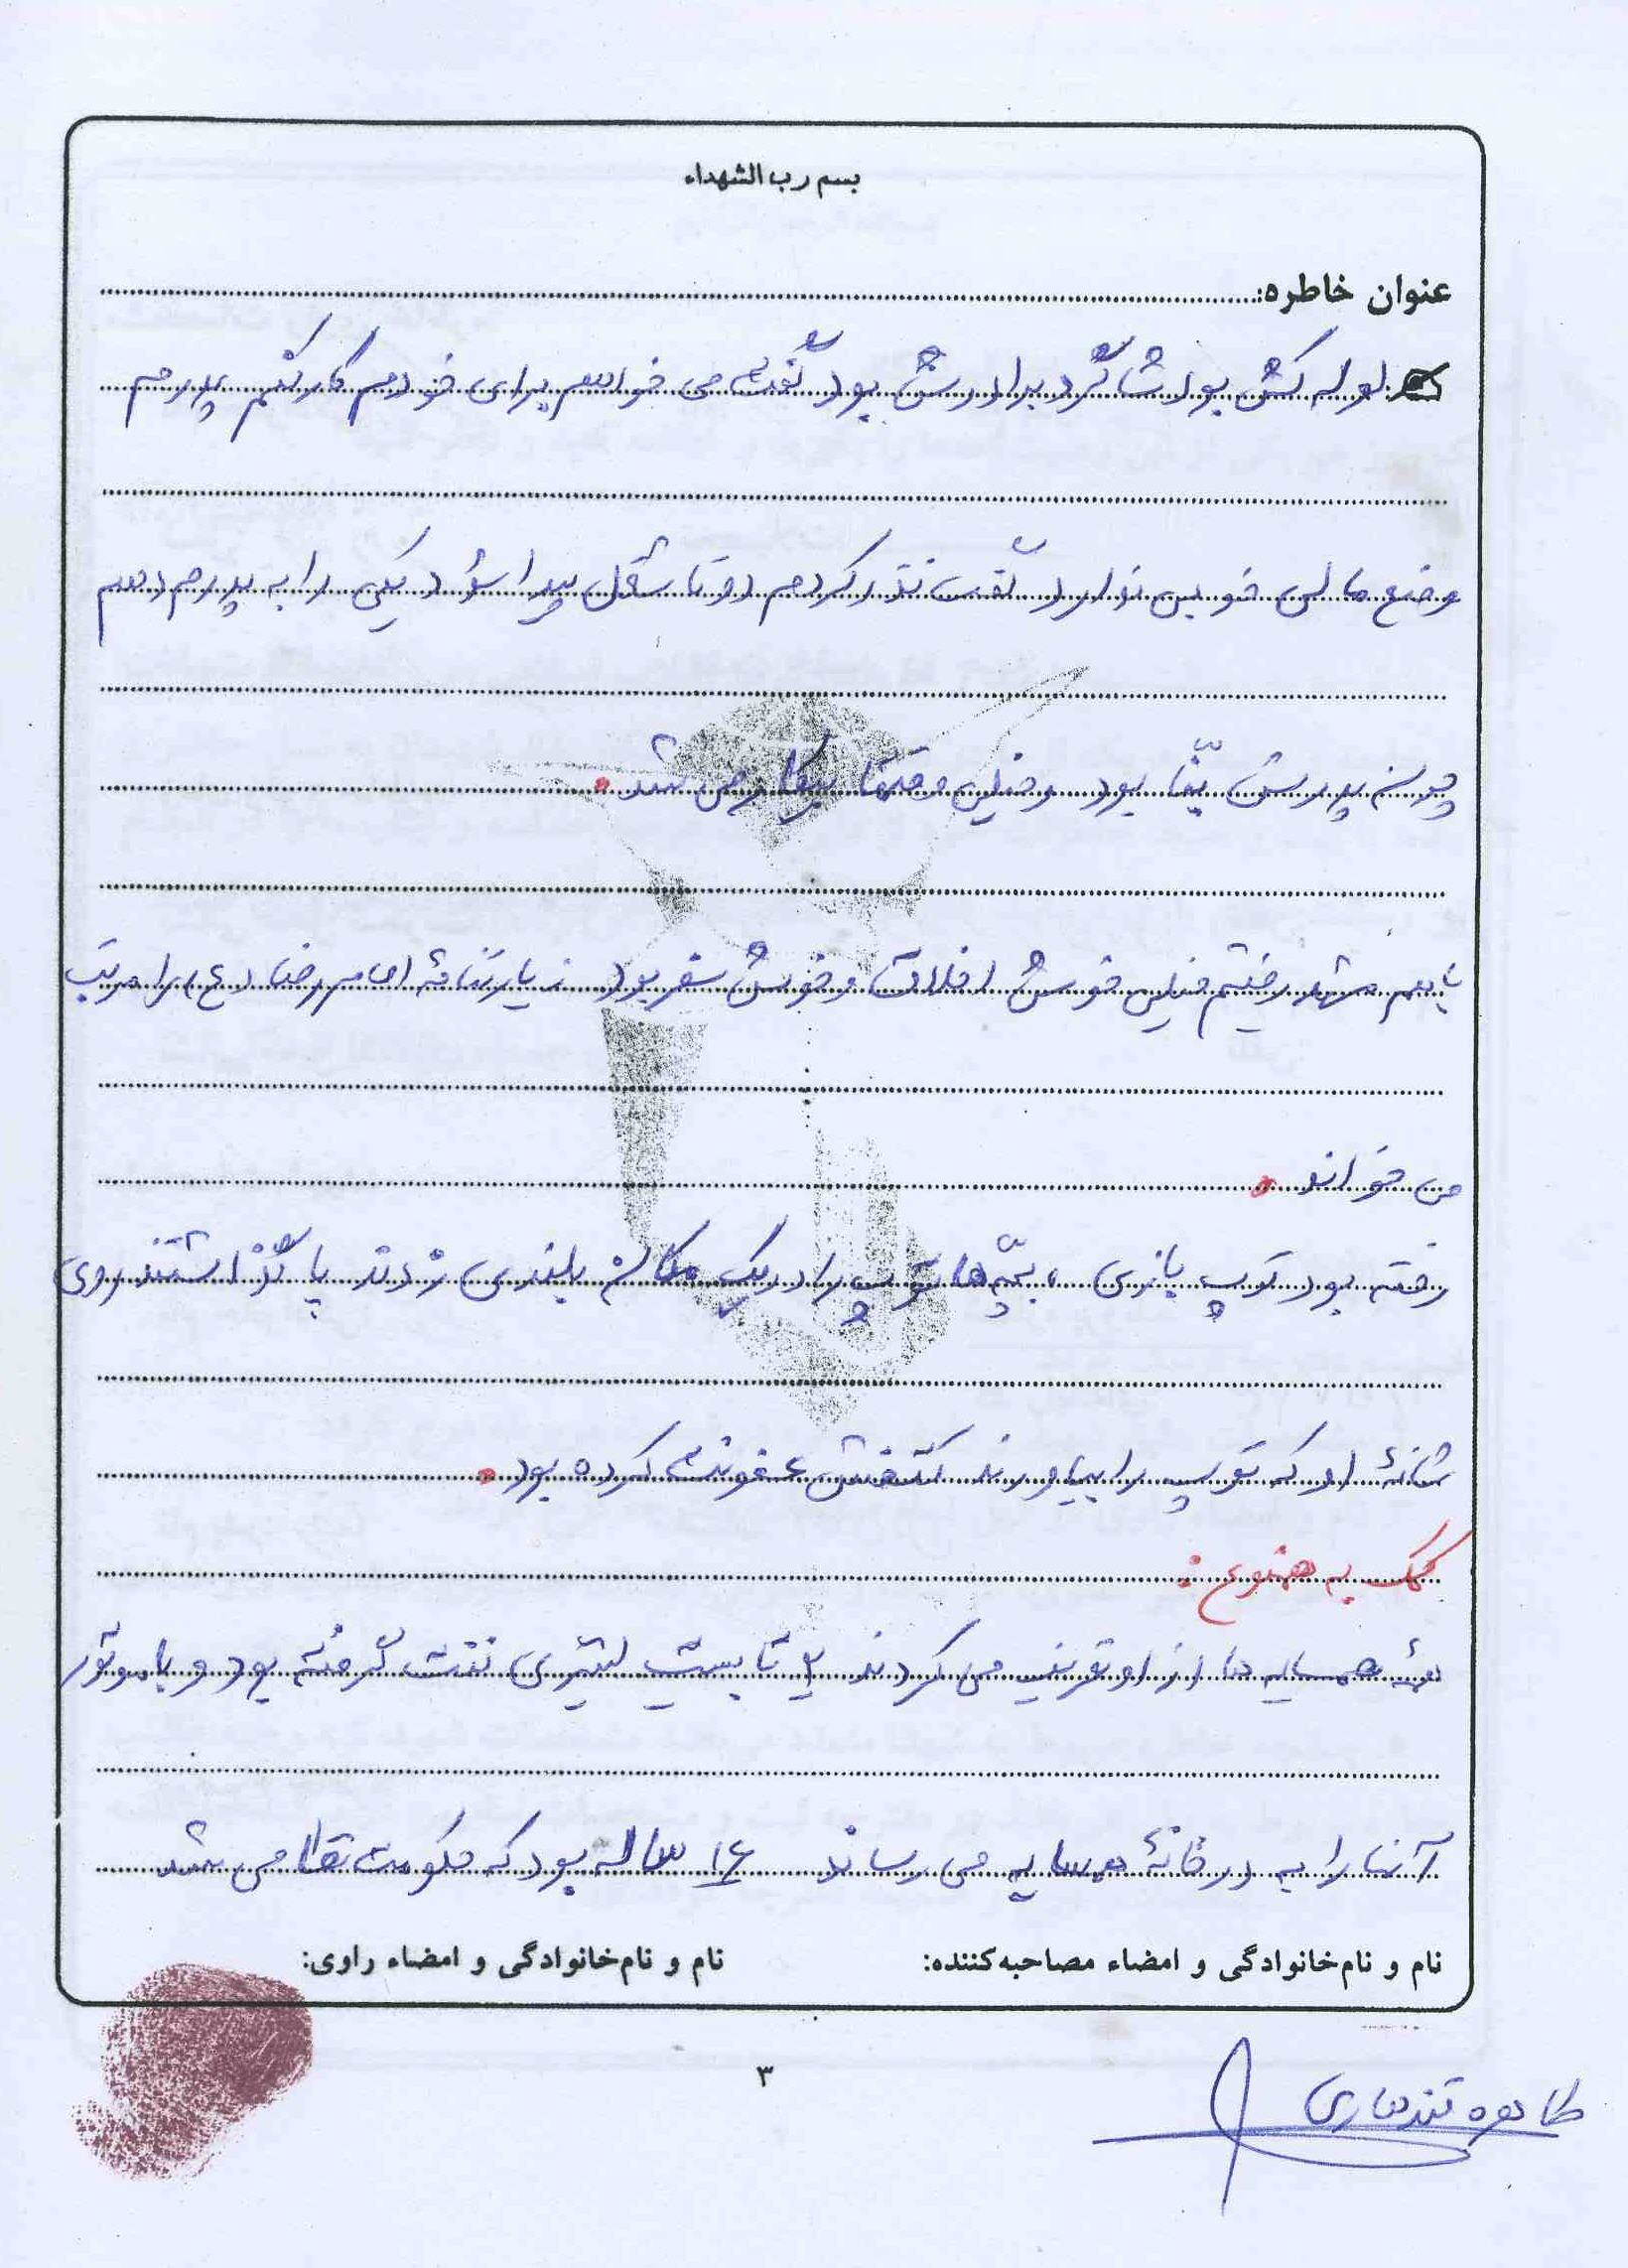 بسم رب الشهداء
عنوان خاطره:
لوله کش بود شاگرد برادرش بود گفت می خواهم برای خودم کار کنم پدرم
وضع مالی خوبی ندارد گفت نذر کردم دو تا شغل پیدا شود یکی را به پدرم دهم
چون پدرش بنّا بود و خیلی وقتها بیکار می شد.
با هم مشهد رفتیم خیلی خوش اخلاق و خوش سفر بود زیارتنامۀ امام رضا (ع) را مرتب
می خواند.
رفته بود توپ بازی، بچّه ها توپ را در یک مکان بلندی زدند پا گذاشتند روی
شانۀ او که توپ را بیاورند کتفش عفونت کرده بود.
کمک به همنوع:
همۀ همسایه ها از او تعریف می کردند ۲ تا بیست لیتری نفت گرفته بود و با موتور
آنها را به در خانۀ همسایه می رساند ۱۶ ساله بود که حکومت نظامی شد
نام و نام‌خانوادگی و امضاء مصاحبه‌کننده:
نام و نام‌خانوادگی و امضاء راوی:
طاهره قندهاری
۳